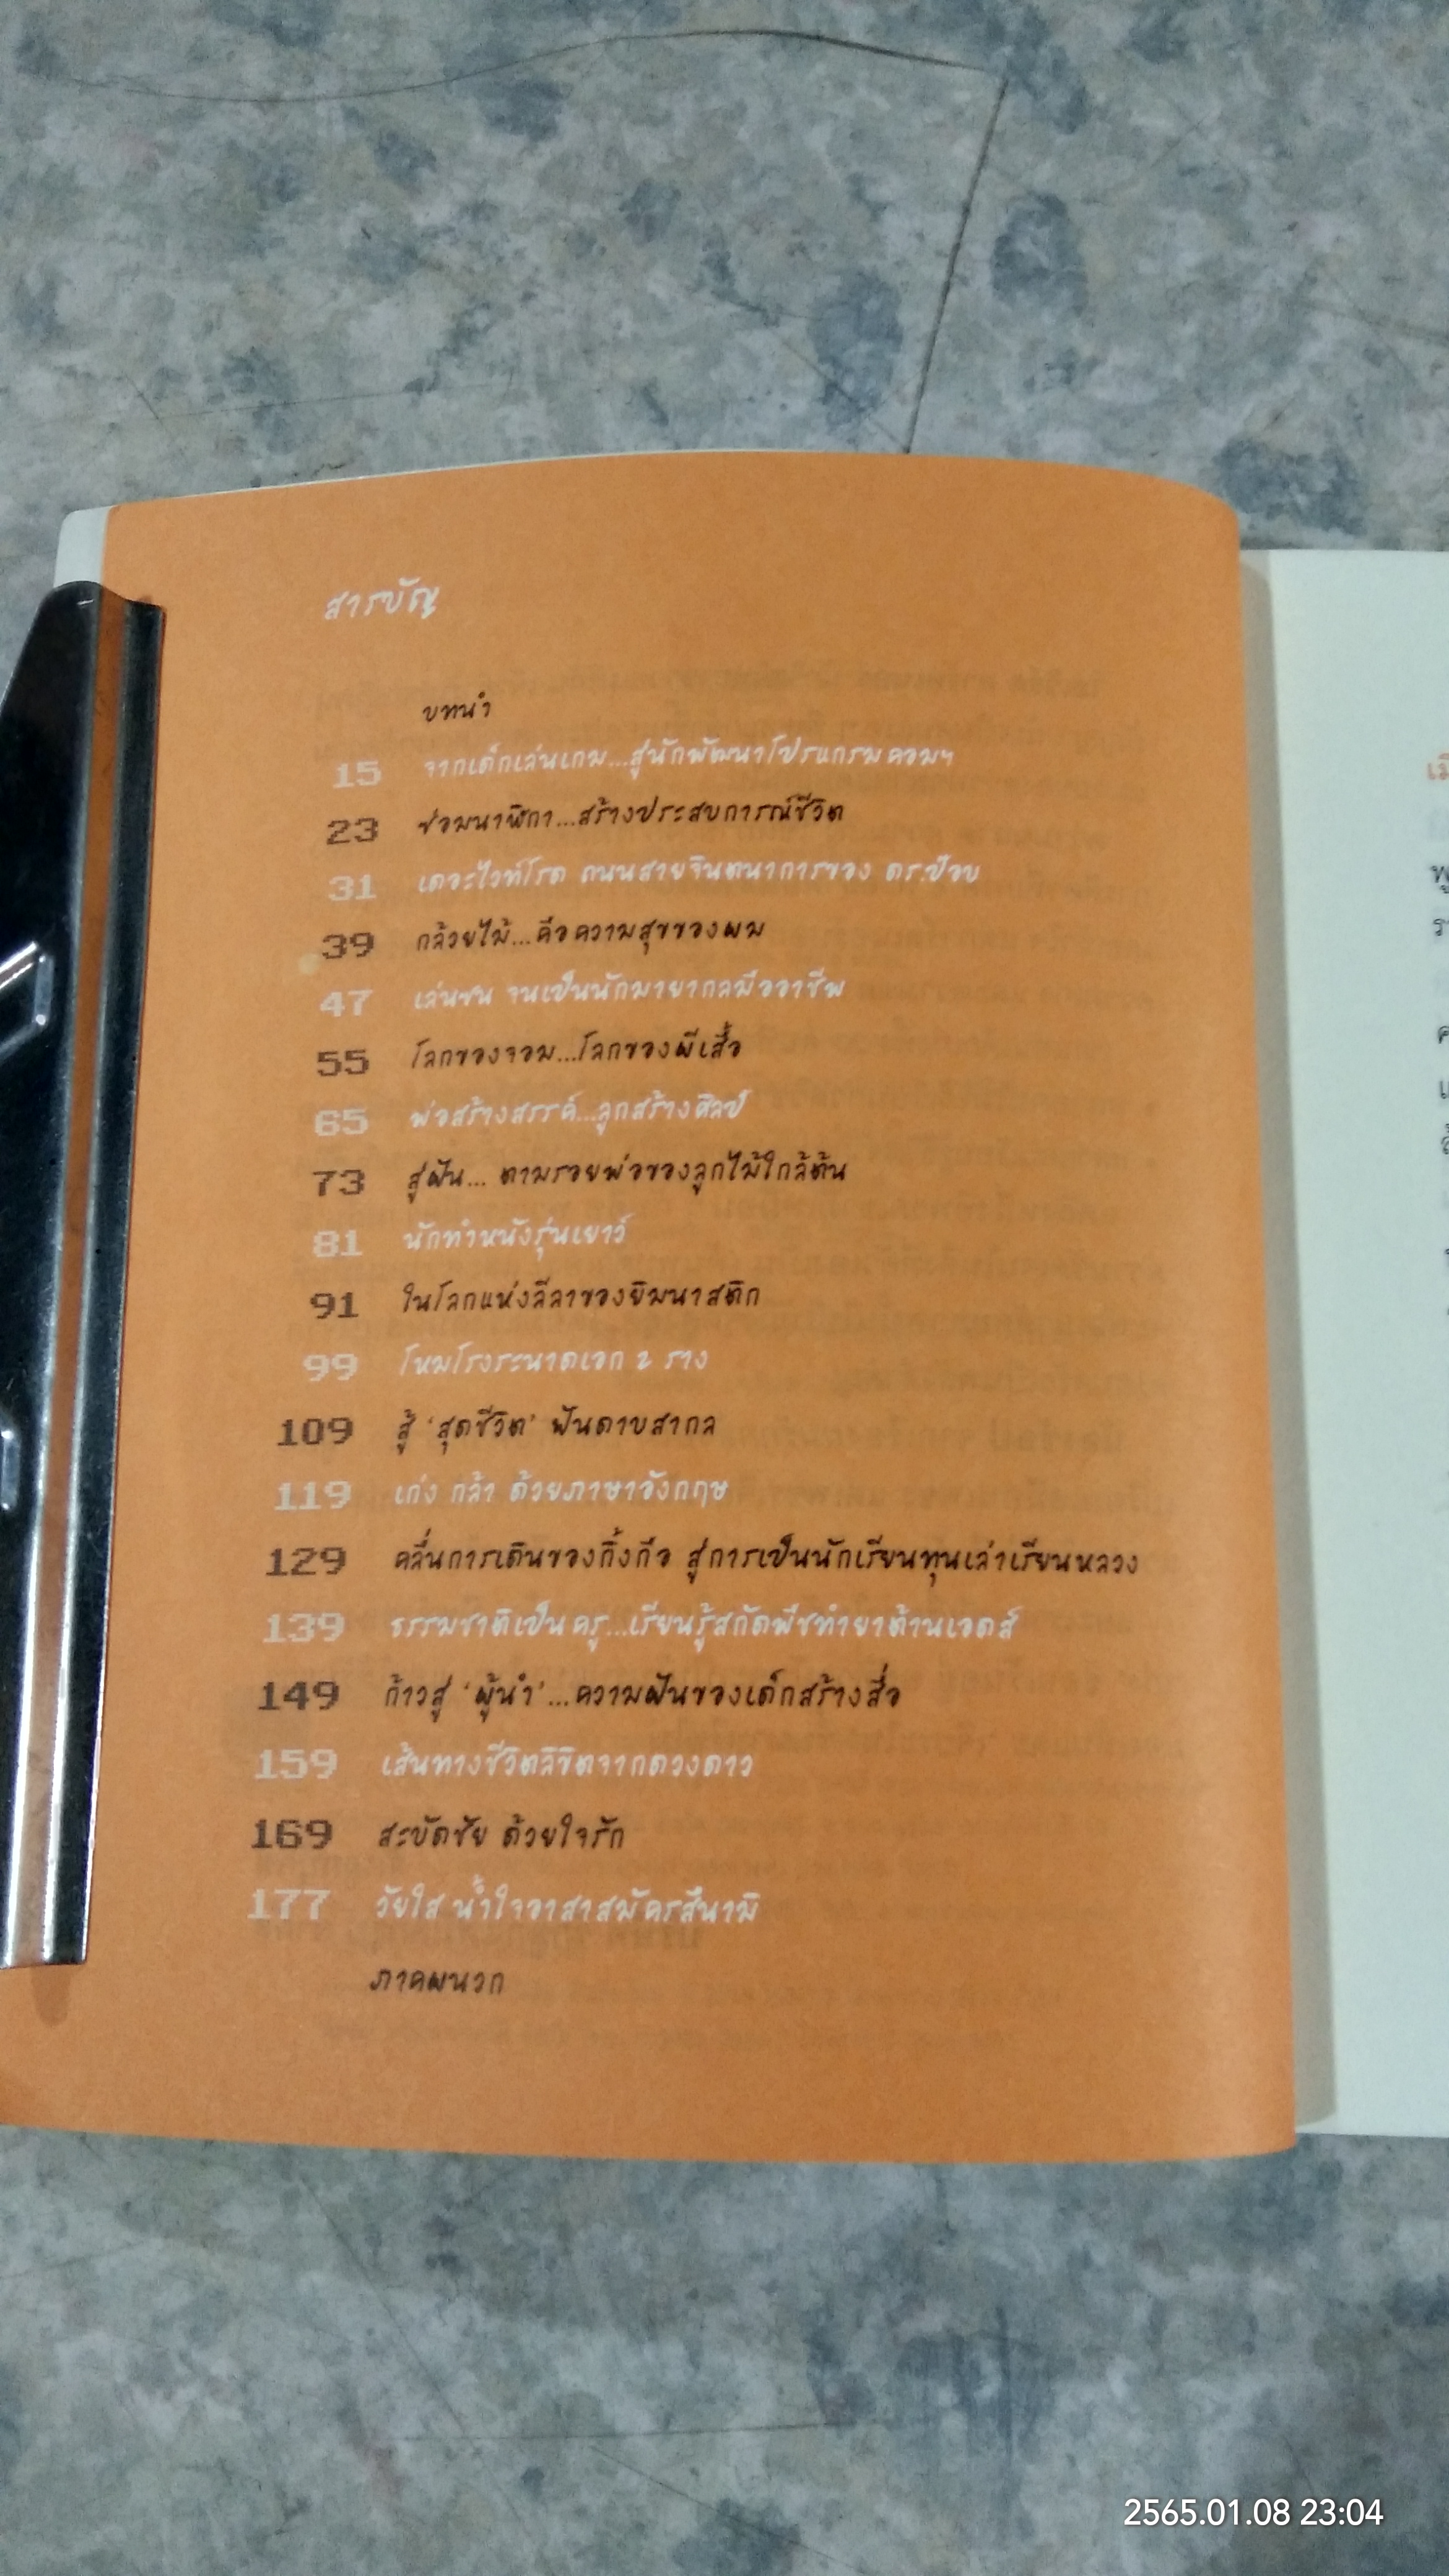 สารบัญ
บทนำ
15 จากเด็กเล่นเกม...สู่นักพัฒนาโปรแกรมคอมฯ
23 ซ่อมนาฬิกา...สร้างประสบการณ์ชีวิต
31 เดอะไวท์โรด ถนนสายจินตนาการของ ดร.ป๊อบ
39 กล้วยไม้...คือความสุขของผม
47 เล่นซน จนเป็นนักมายากลมืออาชีพ
55 โลกของจอม...โลกของผีเสื้อ
65 พ่อสร้างสรรค์...ลูกสร้างศิลป์
73 สู่ฝัน... ตามรอยพ่อของลูกไม้ใกล้ต้น
81 นักทำหนังรุ่นเยาว์
91 ในโลกแห่งลีลาของยิมนาสติก
99 โหมโรงระนาดเอก 2 ราง
109 สู้ 'สุดชีวิต' ฟันดาบสากล
119 เก่ง กล้า ด้วยภาษาอังกฤษ
129 คลื่นการเดินของกิ้งกือ สู่การเป็นนักเรียนทุนเล่าเรียนหลวง
139 ธรรมชาติเป็นครู...เรียนรู้สกัดพืชทำยาต้านเอดส์
149 ก้าวสู่ 'ผู้นำ'...ความฝันของเด็กสร้างสื่อ
159 เส้นทางชีวิตลิขิตจากดวงดาว
169 สะบัดชัย ด้วยใจรัก
177 วัยใส น้ำใจอาสาสมัครสึนามิ
ภาคผนวก
2565.01.08 23:04